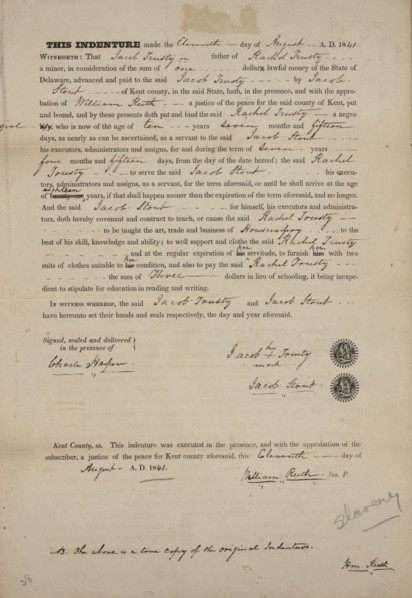 THIS INDENTURE made the Eleventh day of August A. D. 1841.
WITNESSETH: That Jacob Trusty father of Rachel Trusty
a minor, in consideration of the sum of one dollars lawful money of the State of
Delaware, advanced and paid to the said Jacob Trusty by Jacob
Stout of Kent county, in the said State, hath, in the presence, and with the appro-
bation of William Ruth a justice of the peace for said county of Kent, put
and bound, and by these presents doth put and bind the said Rachel Trusty a negro
girl
boy, who is now of the age of ten years seven months and fifteen
days, as nearly as can be ascertained, as a servant to the said Jacob Stout
his executors, administrators and assigns, for and during the term of seven years
four months and fifteen days, from the day of the date hereof; the said Rachel
Trusty to serve the said Jacob Stout his execu-
tors, administrators and assigns, as a servant, for the term aforesaid, or until he shall arrive at the age
eighteen
of years, if that shall happen sooner than the expiration of the term aforesaid, and no longer.
And the said Jacob Stout for himself, his executors and administra-
tors, doth hereby covenant and contract to teach, or cause the said Rachel Trusty
to be taught the art, trade and business of Housewifery to the
best of his skill, knowledge and ability; to well support and clothe the said Rachel Trusty
and at the regular expiration of her servitude, to furnish her with two
suits of clothes suitable to her condition, and also to pay the said Rachel Trusty
the sum of Three dollars in lieu of schooling, it being inexpe-
dient to stipulate for education in reading and writing.
IN WITNESS WHEREOF, the said Jacob Trusty and Jacob Stout
have hereunto set their hands and seals respectively, the day and year aforesaid.
Signed, sealed and delivered
in the presence of
Charles Harper
his
Jacob + Trusty
mark
Jacob Stout
Kent County, ss. This indenture was executed in the presence, and with the approbation of the
subscriber, a justice of the peace for Kent county aforesaid, this Eleventh day of
August A. D. 1841.
William Ruth Jus. P.
Slavery
NB. The above is a true copy of the original Indenture.
Wm. Ruth